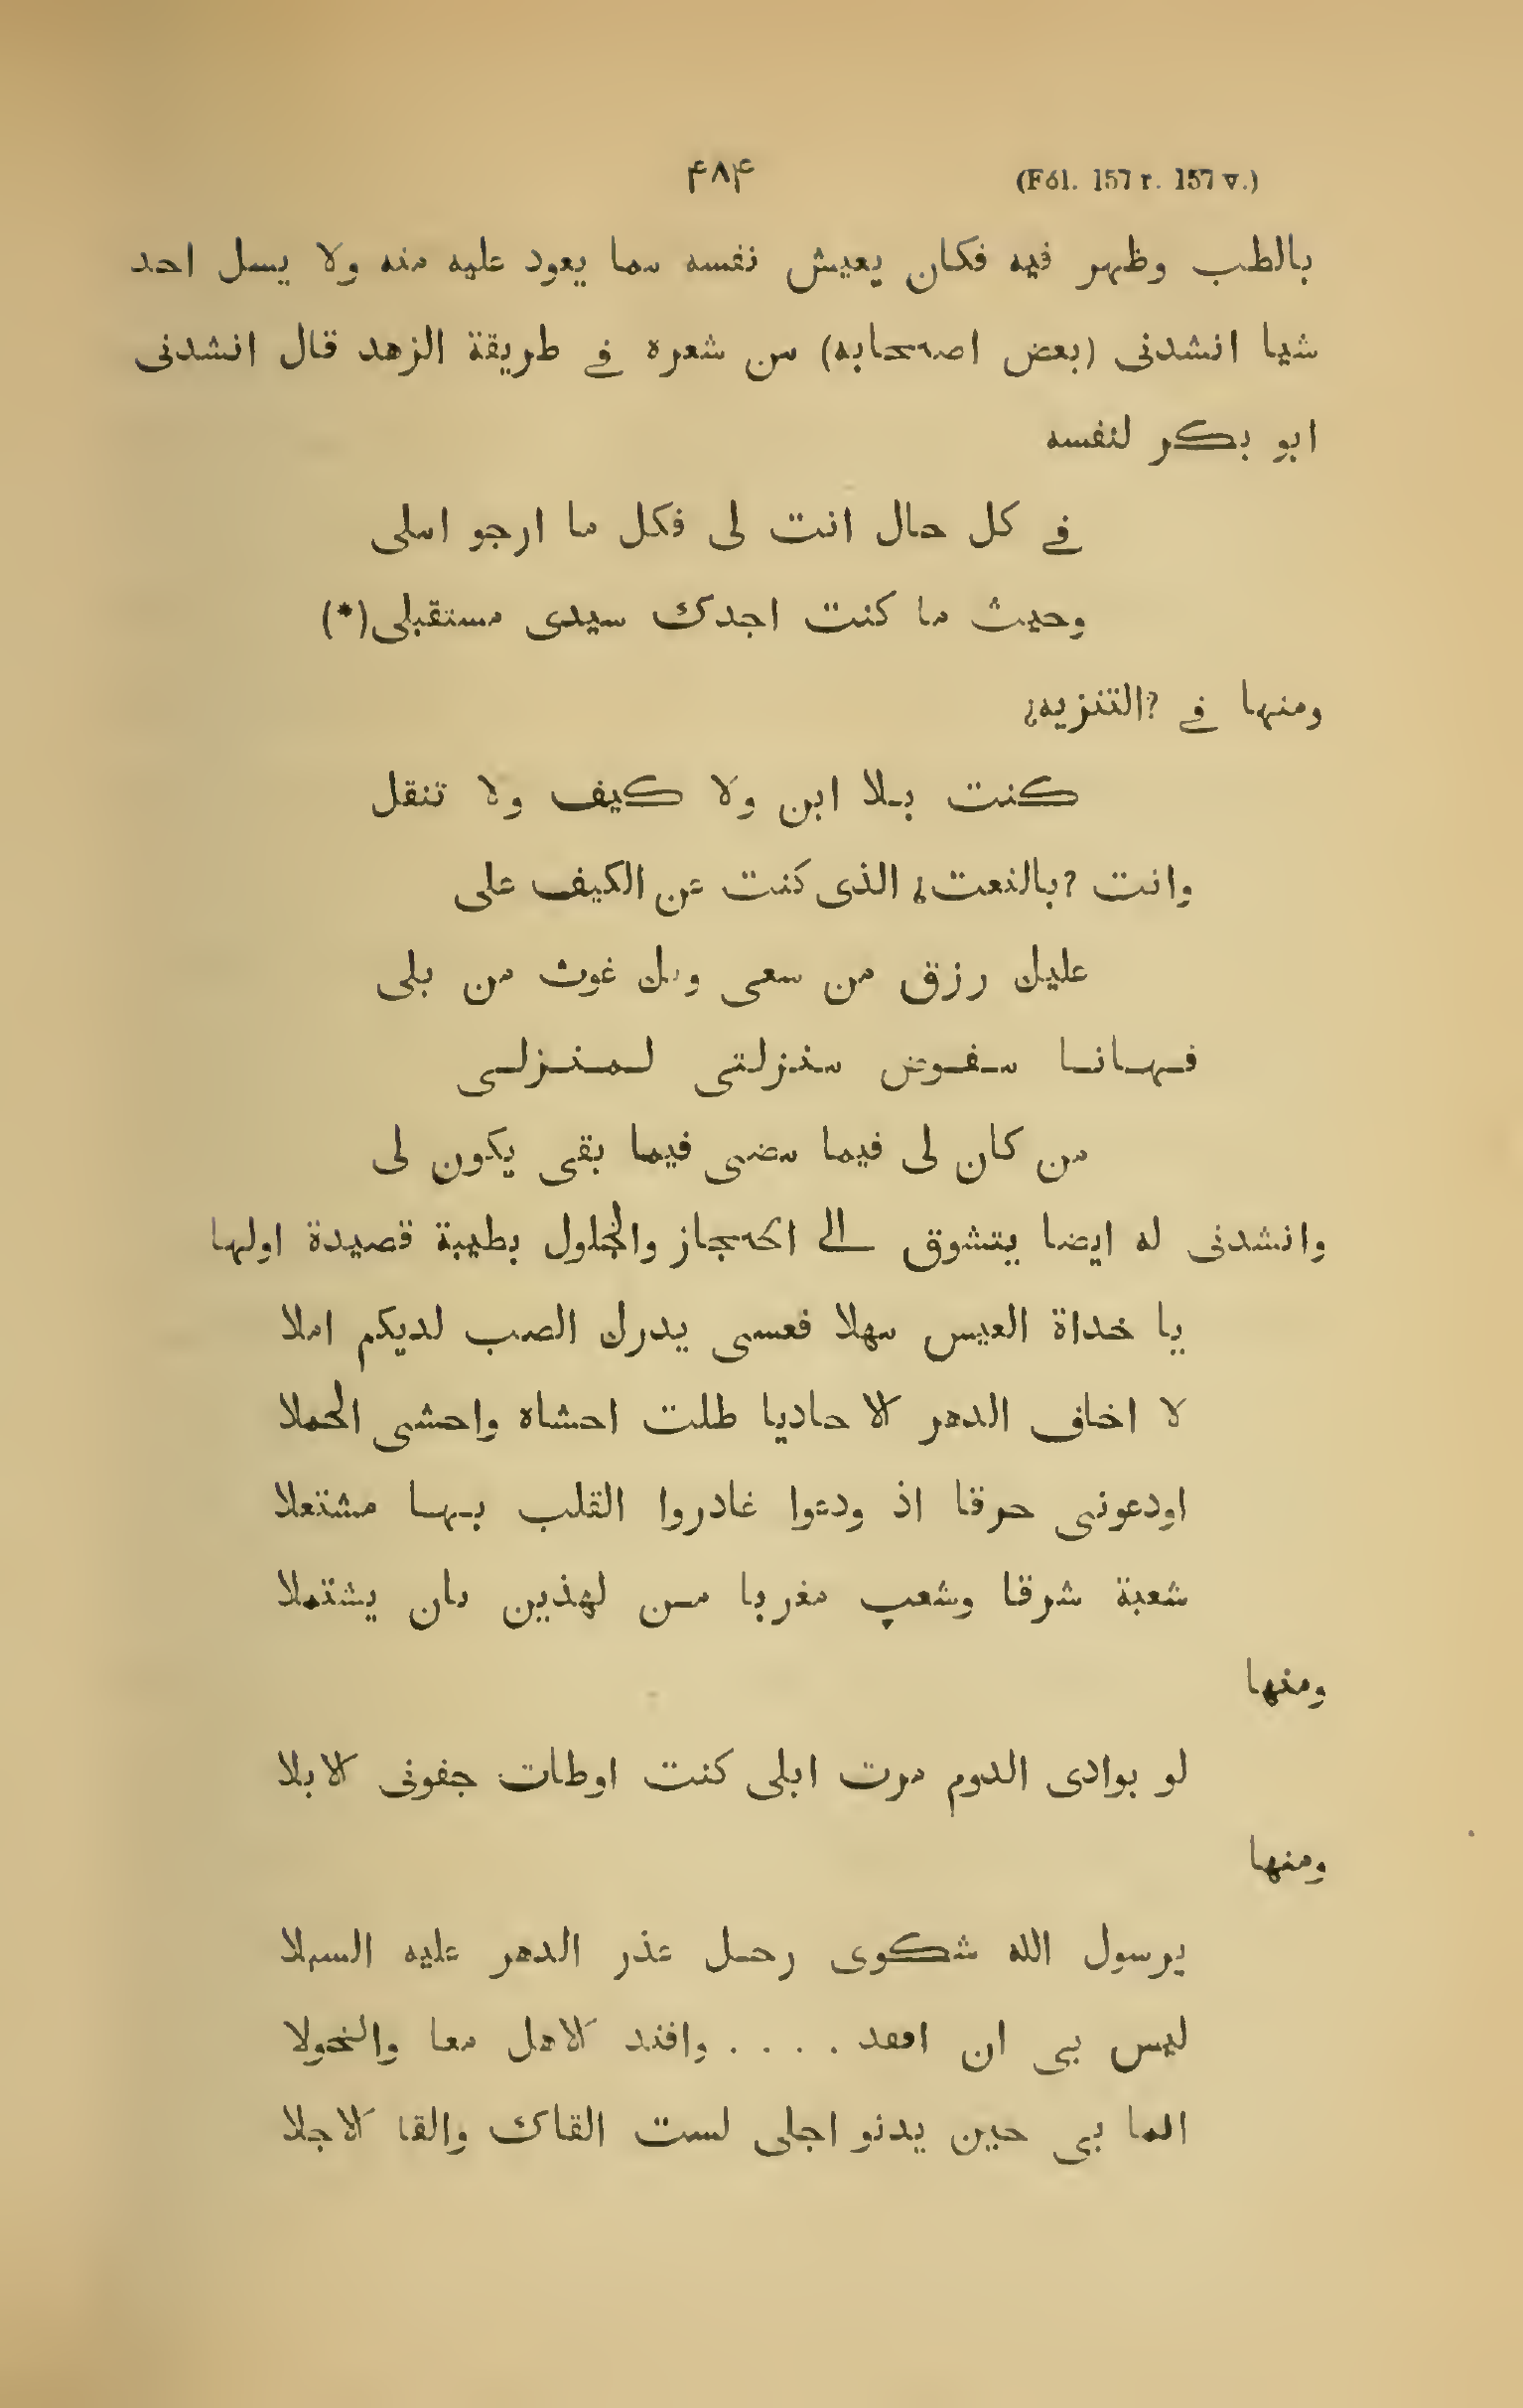 ۴۸۴ (Fól. 157 r. 157 v.)
بالطب وظهر فيه فكان يعيش نفسه مما يعود عليه منه ولا يسل احد
شيا انشدنى (بعض اصحابه) من شعره فے طريقة الزهد قال انشدنى
ابو بكر لنفسه
فے كل حال انت لى فكل ما ارجو املى
وحيث ما كنت اجدك سيدى مستقبلى(*)
ومنها فے ?التنزيه¿
كنت بلا اين ولا كيف ولا تنقل
وانت ?بالنعت¿ الذى كنت عن الكيف على
عليك رزق من سعى وبك غوث من بلى
فهانا مفوض منزلتى لمنزلى
من كان لى فيما مضى فيما بقى يكون لى
وانشدنى له ايضا يتشوق الے الحجاز والحلول بطيبة قصيدة اولها
يا خداة العيس مهلا فعسى يدرك الصب لديكم املا
لا اخاف الدهر الا حاديا ظلت احشاه واحشى الحملا
اودعونى حرقا اذ ودعوا غادروا القلب بها مشتعلا
شعبة شرقا وشعب مغربا من لهذين بان يشتملا
ومنها
لو بوادى الدوم مرت ابلى كنت اوطات جفونى الابلا
ومنها
يرسول الله شكوى رحل عذر الدهر عليه السبلا
ليس بى ان افقد .... وافند الاهل معا والخولا
انما بى حين يدنو اجلى لست القاك والقا الاجلا